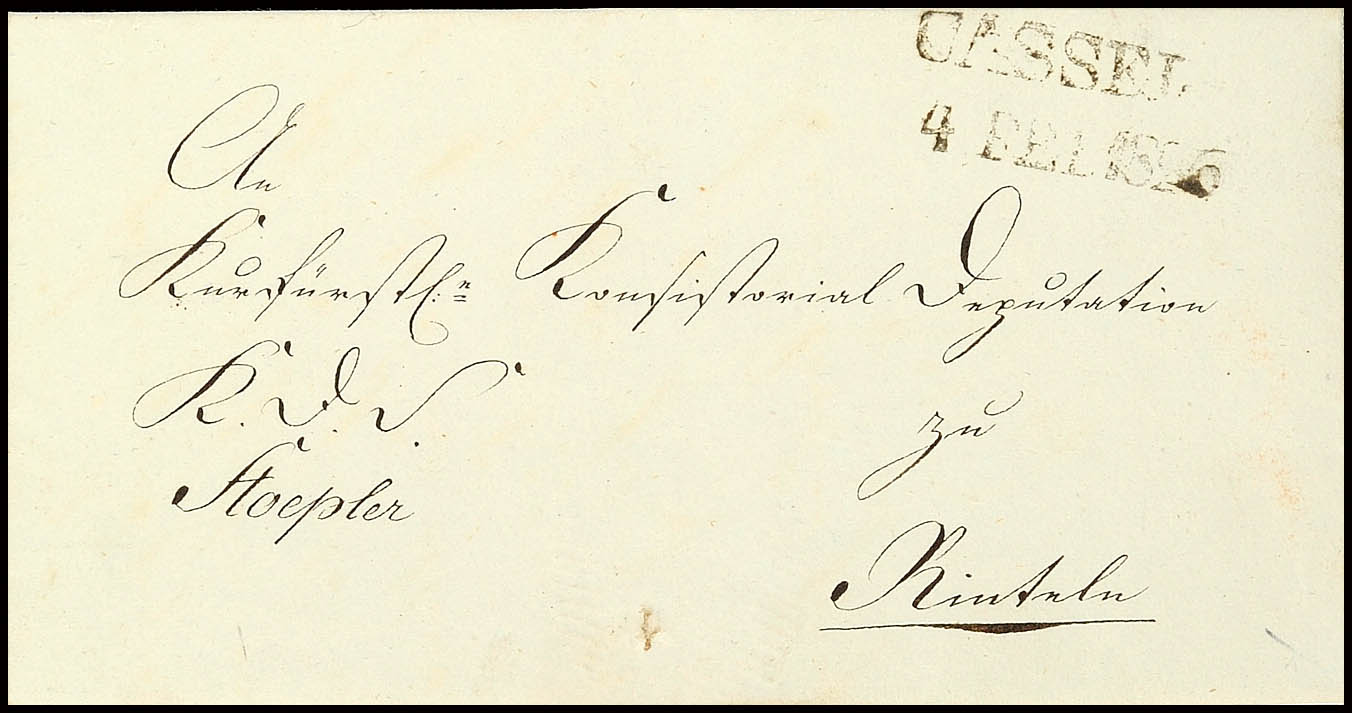 CASSEL
4 FEB 1826
An
Kurfürstl:e Konsistorial Deputation
K. D. S.
zu
Hoepler
Rinteln